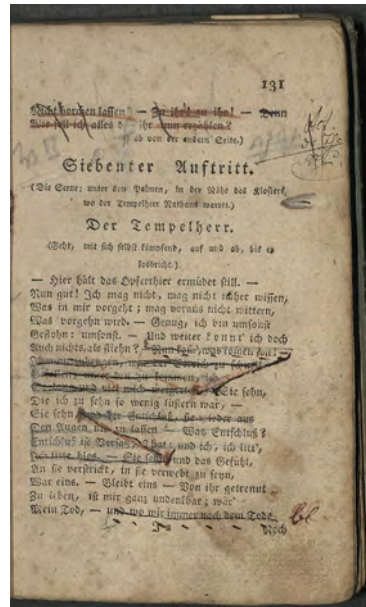 131
Nicht horchen lassen — Zu ihr! zu ihr! — Denn
Wie soll ich alles ihr nun erzählen?
ab von der andern Seite.)
Siebenter Auftritt.
(Die Scene: unter den Palmen, in der Nähe des Klosters,
wo der Tempelherr Nathans wartet.)
Der Tempelherr.
(Geht, mit sich selbst kämpfend, auf und ab, bis er
losbricht.)
— Hier hält das Opferthier ermüdet still. —
Nun gut! Ich mag nicht, mag nicht näher wissen,
Was in mir vorgeht; mag voraus nicht wittern,
Was vorgehn wird. — Genug, ich bin umsonst
Geflohn: umsonst. — Und weiter konnt' ich doch
Auch nichts, als fliehn? — Nun komm', was kommen soll! —
Sie sehn,
Die ich zu sehn so wenig lüstern war, —
Sie sehn, und der Entschluß, sie wieder aus
Den Augen nie zu lassen — Was Entschluß?
Entschluß ist Vorsatz, That; und ich, ich litt',
Ich litte blos. — Sie sehn und das Gefühl,
An sie verstrickt, in sie verwebt zu seyn,
War eins. — Bleibt eins — Von ihr getrennt
Zu leben, ist mir ganz undenkbar; wär'
Mein Tod, — und wo wir immer nach dem Tode
bl
Noch